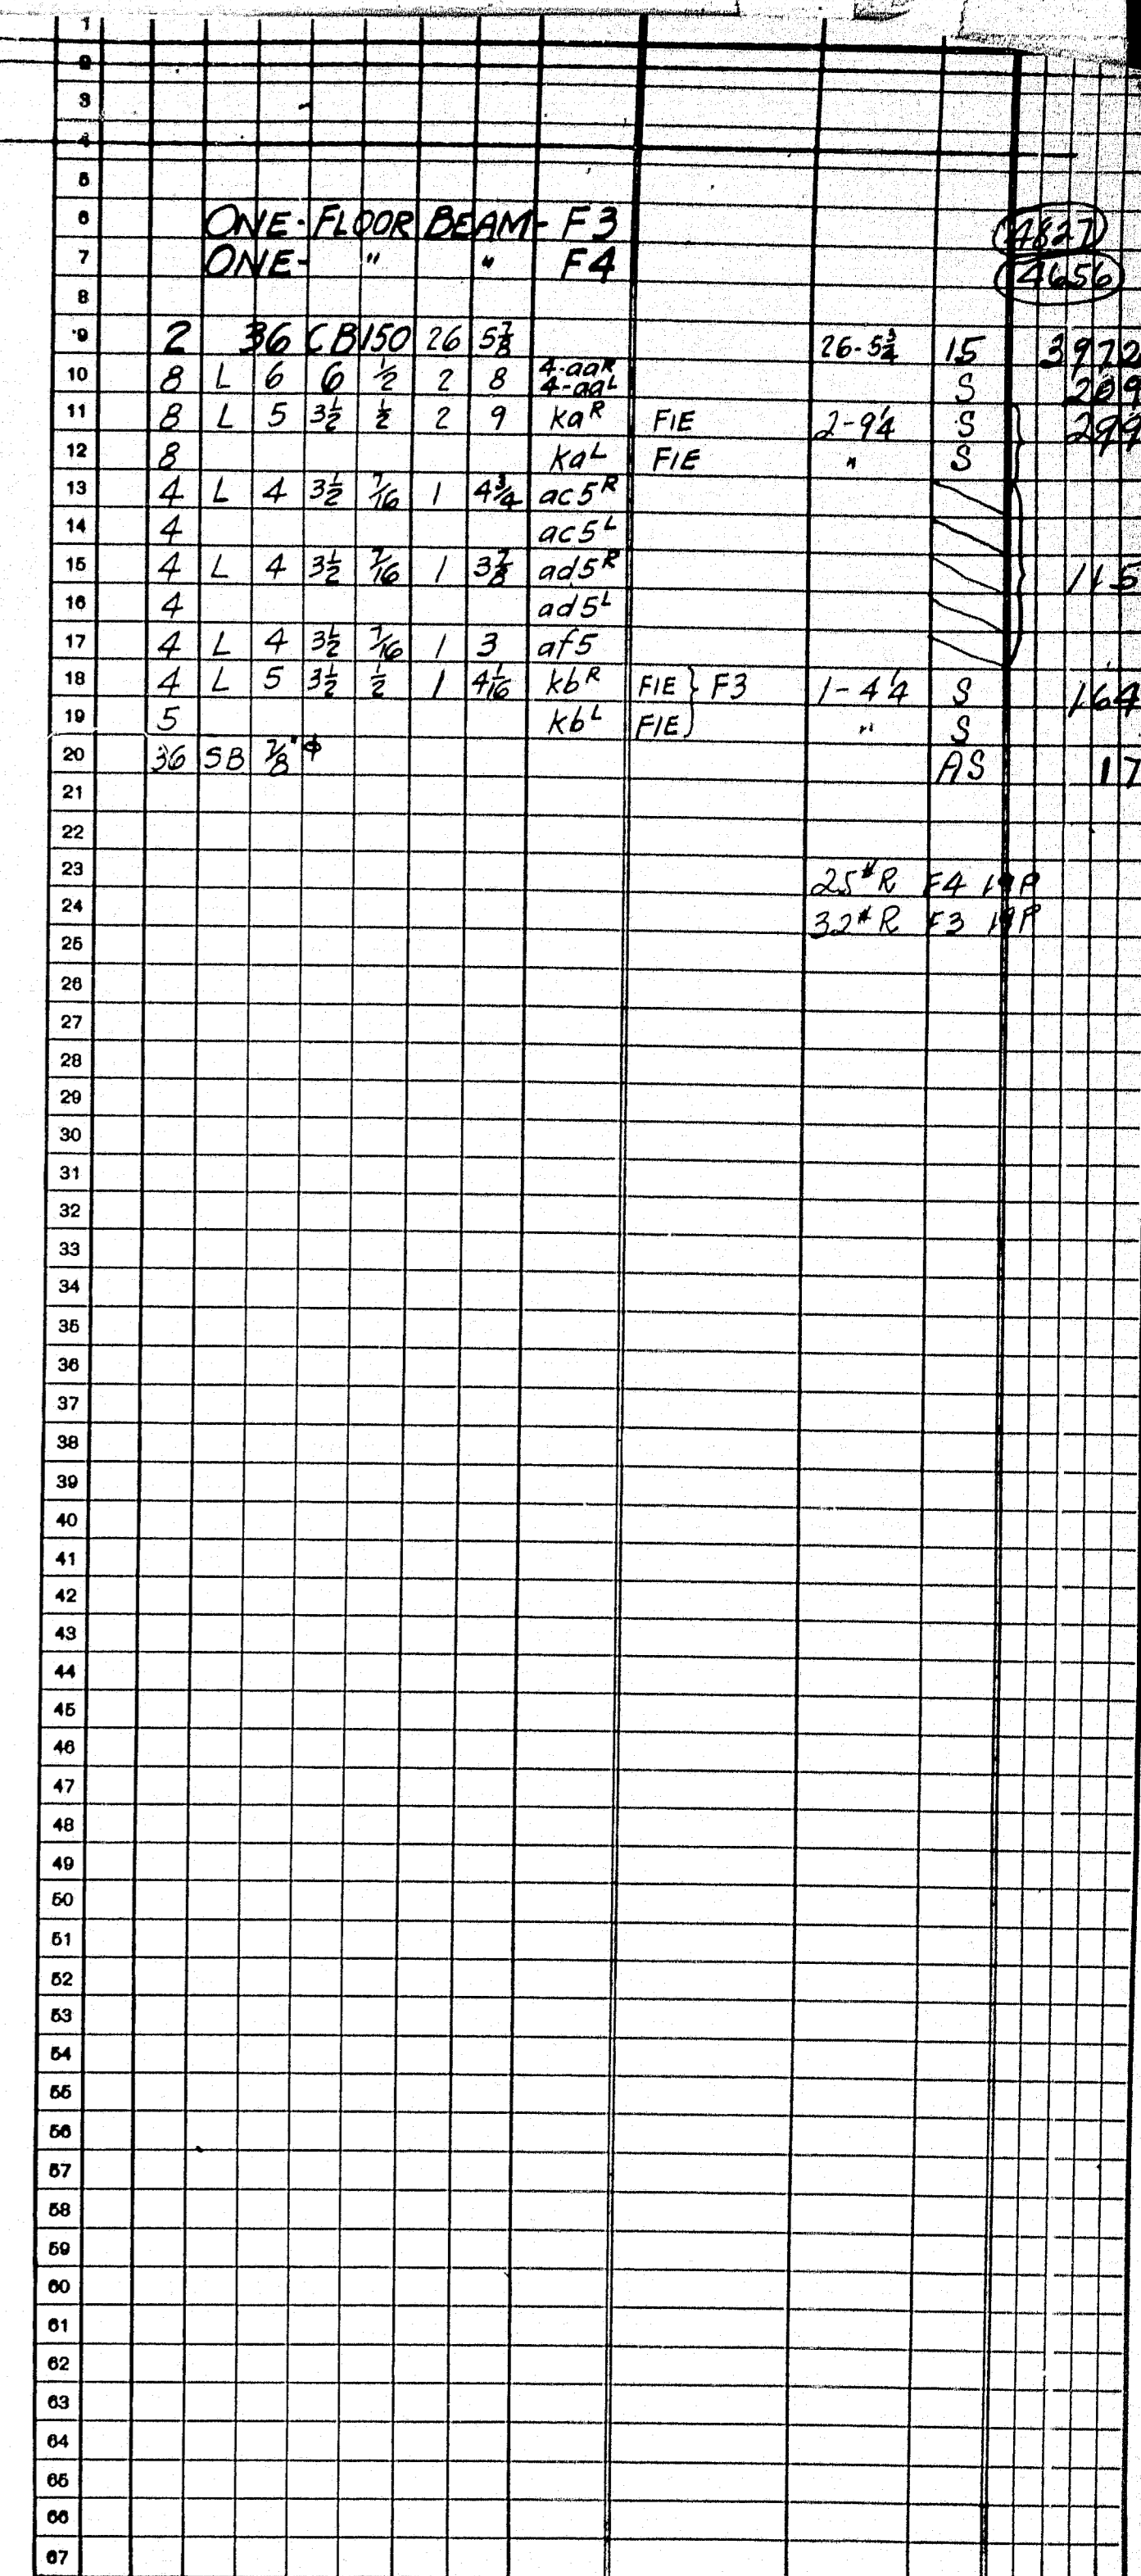 1
2
3
4
5
6 ONE-FLOOR BEAM- F3 4827
7 ONE- " " F4 4656
8
9 2 36 CB 150 26 5 7/8 26-5 3/4 15 3972
10 8 L 6 6 1/2 2 8 4-aaR 4-aaL S 209
11 8 L 5 3 1/2 1/2 2 9 kaR FIE 2-9 1/4 S 299
12 8 kaL FIE " S
13 4 L 4 3 1/2 7/16 1 4 3/4 ac5R
14 4 ac5L
15 4 L 4 3 1/2 7/16 1 3 7/8 ad5R 115
16 4 ad5L
17 4 L 4 3 1/2 7/16 1 3 af5
18 4 L 5 3 1/2 1/2 1 4 1/16 kbR FIE } F3 1-4 1/4 S 164
19 5 kbL FIE " S
20 36 SB 7/8"ϕ AS 17
21
22
23 25#R F4 19P
24 32#R F3 19P
25
26
27
28
29
30
31
32
33
34
35
36
37
38
39
40
41
42
43
44
45
46
47
48
49
50
51
52
53
54
55
56
57
58
59
60
61
62
63
64
65
66
67